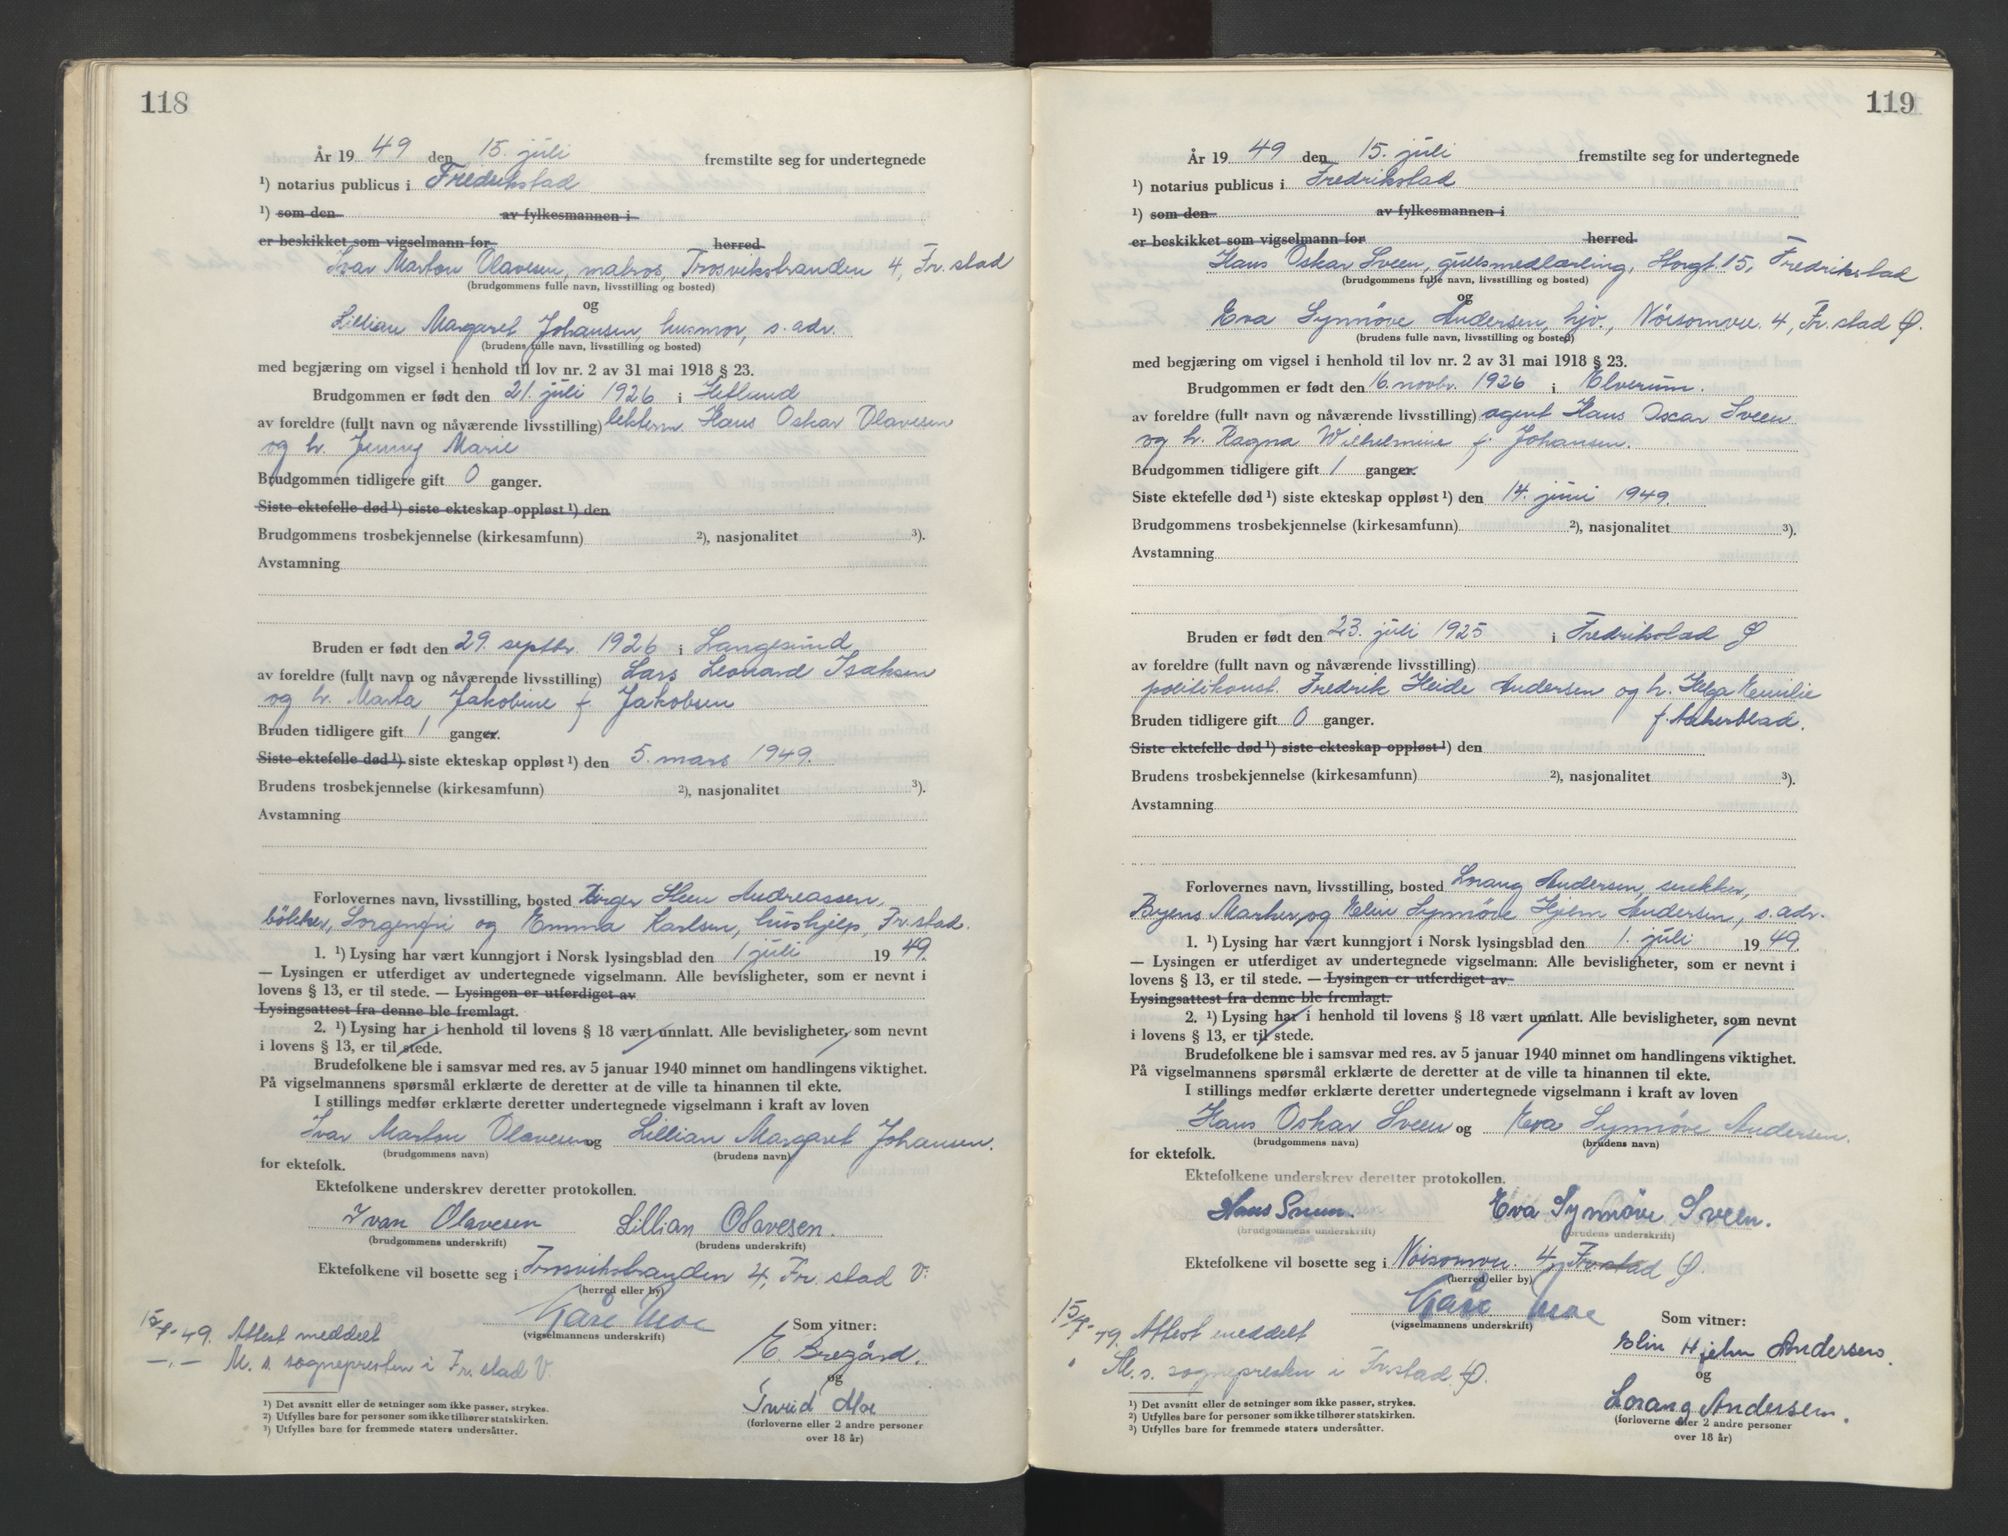 118
År 19 49 den 15. juli fremstilte seg for undertegnede
¹) notarius publicus i Fredrikstad
¹) som den av fylkesmannen i
er beskikket som vigselmann for herred
Ivar Marton Olavesen, matros, Trosvikstranden 4, Fr.stad
(brudgommens fulle navn, livsstilling og bosted)
og
Lillian Margaret Johansen, husmor, s. adr.
(brudens fulle navn, livsstilling og bosted)
med begjæring om vigsel i henhold til lov nr. 2 av 31 mai 1918 § 23.
Brudgommen er født den 21. juli 1926 i Hetland
av foreldre (fullt navn og nåværende livsstilling) Hans Oskar Olavesen
og h. Jenny Marie
Brudgommen tidligere gift 0 ganger.
Siste ektefelle død ¹) siste ekteskap oppløst ¹) den
Brudgommens trosbekjennelse (kirkesamfunn) ²), nasjonalitet ³).
Avstamning
Bruden er født den 29. septbr. 1926 i Langesund
av foreldre (fullt navn og nåværende livsstilling) Lars Leonard Isaksen
og h. Marta Jakobine f. Jakobsen
Bruden tidligere gift 1 ganger.
Siste ektefelle død ¹) siste ekteskap oppløst ¹) den 5. mars 1949.
Brudens trosbekjennelse (kirkesamfunn) ²), nasjonalitet ³).
Avstamning
Forlovernes navn, livsstilling, bosted Birger Steen Andreassen,
bökker, Sorgenfri og Emma Karlsen, hushjelp, Fr.stad.
1. ¹) Lysing har vært kunngjort i Norsk lysingsblad den 1 juli 19 49.
— Lysingen er utferdiget av undertegnede vigselmann. Alle bevisligheter, som er nevnt i
lovens § 13, er til stede. — Lysingen er utferdiget av
Lysingsattest fra denne ble fremlagt.
2. ¹) Lysing har i henhold til lovens § 18 vært unnlatt. Alle bevisligheter, som nevnt
i lovens § 13, er til stede.
Brudefolkene ble i samsvar med res. av 5 januar 1940 minnet om handlingens viktighet.
På vigselmannens spørsmål erklærte de deretter at de ville ta hinannen til ekte.
I stillings medfør erklærte deretter undertegnede vigselmann i kraft av loven
Ivar Marton Olavesen og Lillian Margaret Johansen.
(brudgommens navn) (brudens navn)
for ektefolk.
Ektefolkene underskrev deretter protokollen.
Ivan Olavesen Lillian Olavesen.
(brudgommens underskrift) (brudens underskrift)
Ektefolkene vil bosette seg i Trosvikstranden 4, Fr.stad V.
(herred eller by)
Kåre Moe
(vigselmannens underskrift)
Som vitner:
15/7-49. Attest meddelt
E. Bregård.
—.— M. s. sognepresten i Fr.stad V.
og
Turid Moe
(forloverne eller 2 andre personer
over 18 år)
¹) Det avsnitt eller de setninger som ikke passer, strykes.
²) Utfylles bare for personer som ikke tilhører statskirken.
³) Utfylles bare for fremmede staters undersåtter.
119
År 19 49 den 15. juli fremstilte seg for undertegnede
¹) notarius publicus i Fredrikstad
¹) som den av fylkesmannen i
er beskikket som vigselmann for herred
Hans Oskar Sveen, gullsmedlærling, Storgt. 15, Fredrikstad
(brudgommens fulle navn, livsstilling og bosted)
og
Eva Synnöve Andersen, hjv., Nöisomvn. 4, Fr.stad Ø.
(brudens fulle navn, livsstilling og bosted)
med begjæring om vigsel i henhold til lov nr. 2 av 31 mai 1918 § 23.
Brudgommen er født den 16. novbr. 1926 i Elverum.
av foreldre (fullt navn og nåværende livsstilling) agent Hans Oscar Sveen
og h. Ragna Wilhelmine f. Johansen.
Brudgommen tidligere gift 1 ganger.
Siste ektefelle død ¹) siste ekteskap oppløst ¹) den 14. juni 1949.
Brudgommens trosbekjennelse (kirkesamfunn) ²), nasjonalitet ³).
Avstamning
Bruden er født den 23. juli 1925 i Fredrikstad Ø
av foreldre (fullt navn og nåværende livsstilling)
politikonst. Fredrik Heide Andersen og h. Helga Emilie
Bruden tidligere gift 0 ganger. f. Aakerblad.
Siste ektefelle død ¹) siste ekteskap oppløst ¹) den
Brudens trosbekjennelse (kirkesamfunn) ²), nasjonalitet ³).
Avstamning
Forlovernes navn, livsstilling, bosted Lorang Andersen, snekker,
Byens Marker, og Elin Synnöve Hjelm Andersen, s. adr.
1. ¹) Lysing har vært kunngjort i Norsk lysingsblad den 1. juli 19 49.
— Lysingen er utferdiget av undertegnede vigselmann. Alle bevisligheter, som er nevnt i
lovens § 13, er til stede. — Lysingen er utferdiget av
Lysingsattest fra denne ble fremlagt.
2. ¹) Lysing har i henhold til lovens § 18 vært unnlatt. Alle bevisligheter, som nevnt
i lovens § 13, er til stede.
Brudefolkene ble i samsvar med res. av 5 januar 1940 minnet om handlingens viktighet.
På vigselmannens spørsmål erklærte de deretter at de ville ta hinannen til ekte.
I stillings medfør erklærte deretter undertegnede vigselmann i kraft av loven
Hans Oskar Sveen og Eva Synnöve Andersen.
(brudgommens navn) (brudens navn)
for ektefolk.
Ektefolkene underskrev deretter protokollen.
Hans Sveen. Eva Synnöve Sveen.
(brudgommens underskrift) (brudens underskrift)
Ektefolkene vil bosette seg i Nöisomvn. 4, Fr.stad Ø.
(herred eller by)
Kåre Moe
(vigselmannens underskrift)
Som vitner:
15/7-49. Attest meddelt
Elin Hjelm Andersen.
" M. s. sognepresten i Fr.stad Ø.
og
Lorang Andersen.
(forloverne eller 2 andre personer
over 18 år)
¹) Det avsnitt eller de setninger som ikke passer, strykes.
²) Utfylles bare for personer som ikke tilhører statskirken.
³) Utfylles bare for fremmede staters undersåtter.